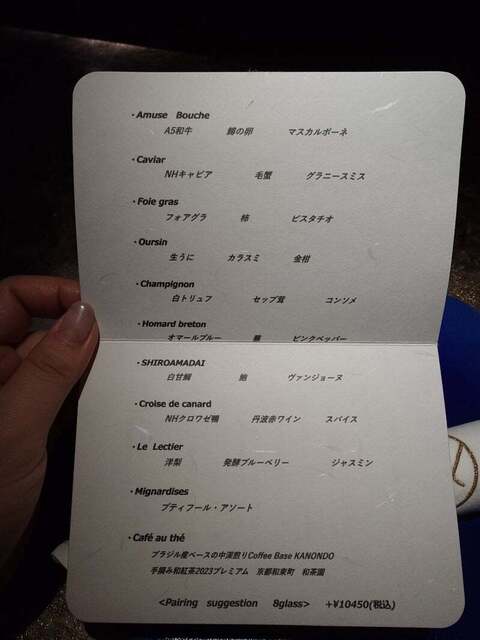 ・Amuse Bouche
A5和牛 鱒の卵 マスカルポーネ
・Caviar
NHキャビア 毛蟹 グラニースミス
・Foie gras
フォアグラ 柿 ピスタチオ
・Oursin
生うに カラスミ 金柑
・Champignon
白トリュフ セップ茸 コンソメ
・Homard breton
オマールブルー ピンクペッパー
・SHIROAMADAI
白甘鯛 鮑 ヴァンジョーヌ
・Croise de canard
NHクロワゼ鴨 丹波赤ワイン スパイス
・Le Lectier
洋梨 発酵ブルーベリー ジャスミン
・Mignardises
プティフール・アソート
・Café au thé
ブラジル産ベースの中深煎りCoffee Base KANONDO
手摘み和紅茶2023プレミアム 京都和束町 和茶園
<Pairing suggestion 8glass> +¥10450(税込)